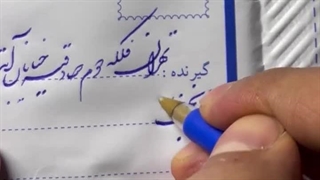 گیرنده: تهران فلکه دوم صادقیه خیابان آیت